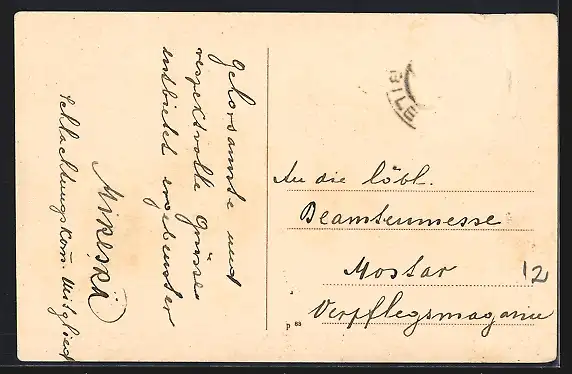 Gehorsamste und
respektvolle Grüsse
entbietet ergebenster
Mikeska
Schlachtungskom. Mitglied
BILE
An die löbl.
Beamtenmesse
Mostar
12
Verpflegsmagazin
P. 83